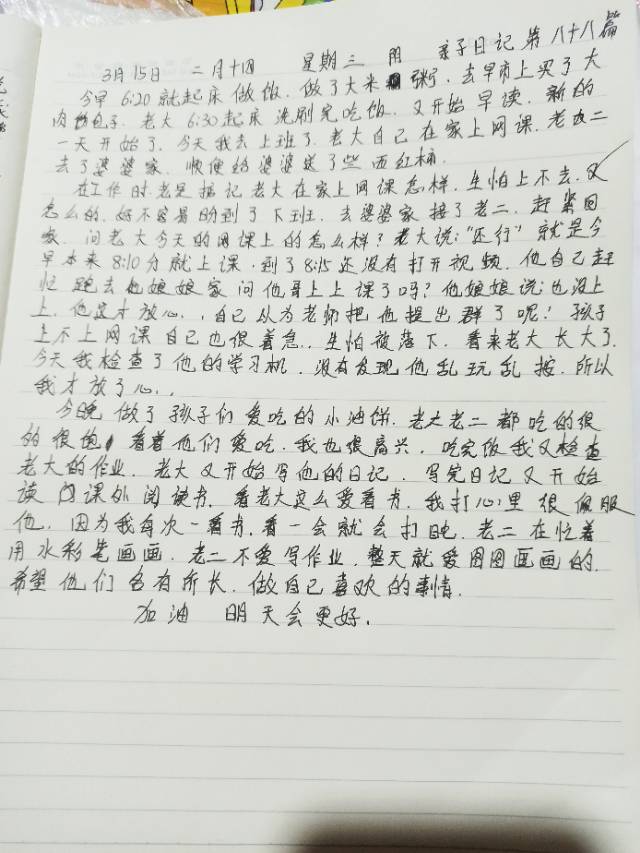 3月15日 二月十四 星期三 阴 亲子日记第八十八篇
今早6:20就起床做饭.做了大米粥.去早市上买了大
肉包子.老大6:30起床洗刷完吃饭.又开始早读.新的
一天开始了.今天我去上班了.老大自己在家上网课.老二
去了婆婆家.顺便给婆婆送了些西红柿.
在工作时.老是掂记老大在家上网课怎样.生怕上不去.又
怎么的.好不容易盼到了下班.去婆婆家接了老二.赶紧回
家.问老大今天的网课上的怎么样?老大说:"还行"就是今
早本来8:10分就上课.到了8:15还没有打开视频.他自己赶
忙跑去他娘娘家问他哥上上课了吗?他娘娘说:也没上
上.他这才放心..自己认为老师把他提出群了呢!孩子
上不上网课自己也很着急..生怕被落下.看来老大长大了.
今天我检查了他的学习机.没有发现他乱玩乱按.所以
我才放了心..
今晚做了孩子们爱吃的小油饼.老大老二都吃的很
的很饱.看着他们爱吃.我也很高兴.吃完饭我又检查
老大的作业.老大又开始写他的日记.写完日记又开始
读门课外阅读书.看老大这么爱看书.我打心里很佩服
他.因为我每次一看书.看一会就会打盹.老二在忙着
用水彩笔画画.老二不爱写作业.整天就爱图图画画的.
希望他们各有所长.做自己喜欢的事情.
加油 明天会更好.